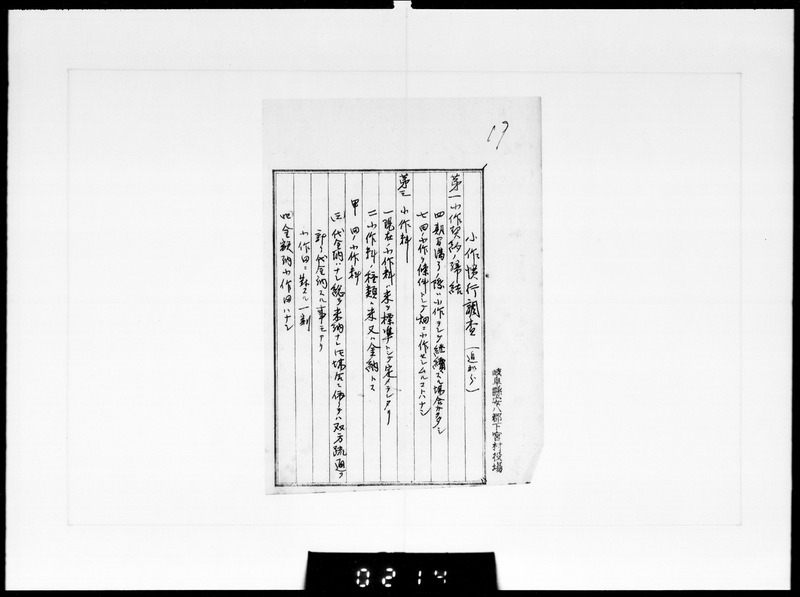 19
小作慣行調査(追加分)
第一 小作契約ノ締結
四 期間満了ノ際ハ小作ヲシテ継続スル場合多シ
七 田小作ヲ條件トシテ畑ヲ小作セシムルコトハナシ
第三 小作料
一 現在ノ小作料ハ米ヲ標準トシテ定メラレタリ
二 小作料ノ種類ハ米又ハ金納トス
甲 田ノ小作料
(三) 代金納ハナシ総テ米納ナレ共場合ニ依リテハ双方疏通ヲ
計リ代金納スル事モアリ
小作田ニ対スル一割
(四) 金額納小作田ハナシ
岐阜縣安八郡下宮村役場
0214